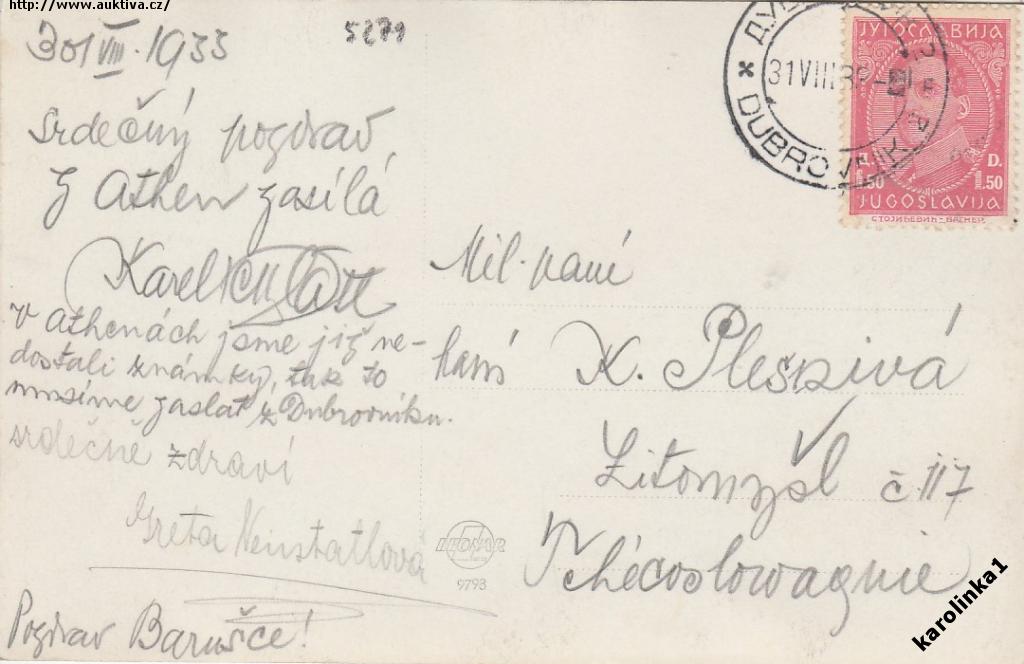 http://www.auktiva.cz/
30/VIII.1933
5279
Srdečný pozdrav
z Athen zasílá
Karel
v Athenách jsme již ne-
dostali známky, tak to
musíme zaslat z Dubrovníku.
srdečně zdraví
Greta Neustatlová
Pozdrav Barušce!
Mil. paní
K. Pleskivá
Litomyšl č 117
Tchécoslowaquie
31 VIII 3
DUBROV
ЈУГОСЛАВИЈА
D.
1.50
1.50
JUGOSLAVIJA
СТОЈИЋЕВИЋ-ВАГНЕР.
9793
karolinka1